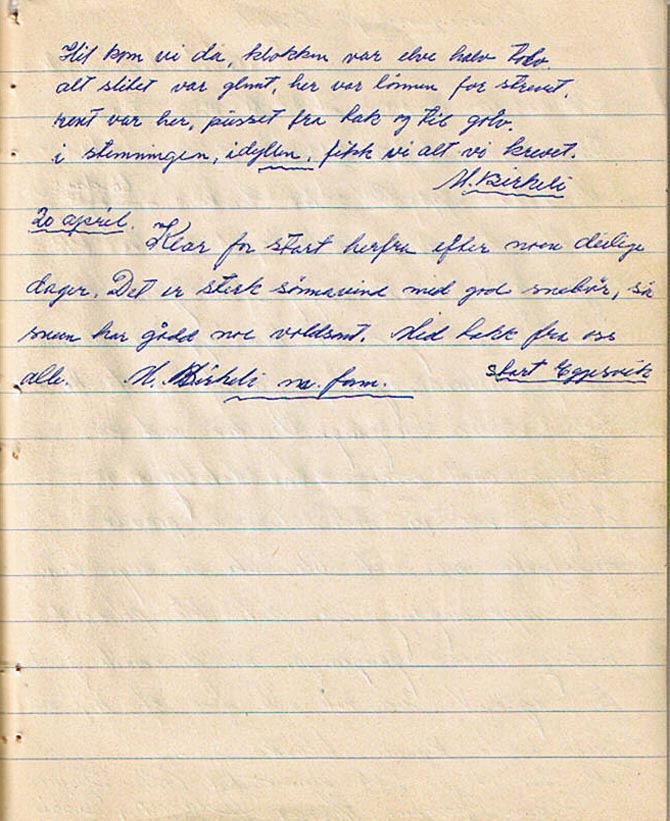 Hit kom vi da, klokken var elve halv tolv
alt slitet var glemt, her var lönnen for strevet.
rent var her, pusset fra tak og til golv.
i stemningen, idyllen, fikk vi alt vi krevet.
M. Birkeli
20 april. Klar for start herfra efter noen deilige
dager. Det er sterk sönnavind med god snebör, så
sneen har gådd noe voldsomt. Med takk fra oss
alle. M. Birkeli m. fam. start Eggesvik